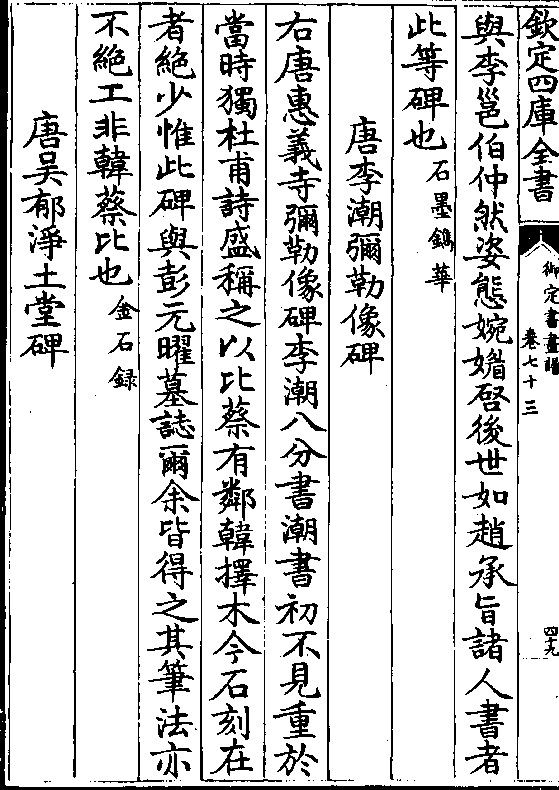 欽定四庫全書
御定書畫譜
卷七十三
四十九
與李邕伯仲然姿態婉媚啓後世如趙承旨諸人書者
此等碑也石墨鐫華
唐李潮彌勒像碑
右唐惠義寺彌勒像碑李潮八分書潮書初不見重於
當時獨杜甫詩盛稱之以比蔡有鄰韓擇木今石刻在
者絶少惟此碑與彭元曜墓誌爾余皆得之其筆法亦
不絶工非韓蔡比也金石録
唐吳郁淨土堂碑